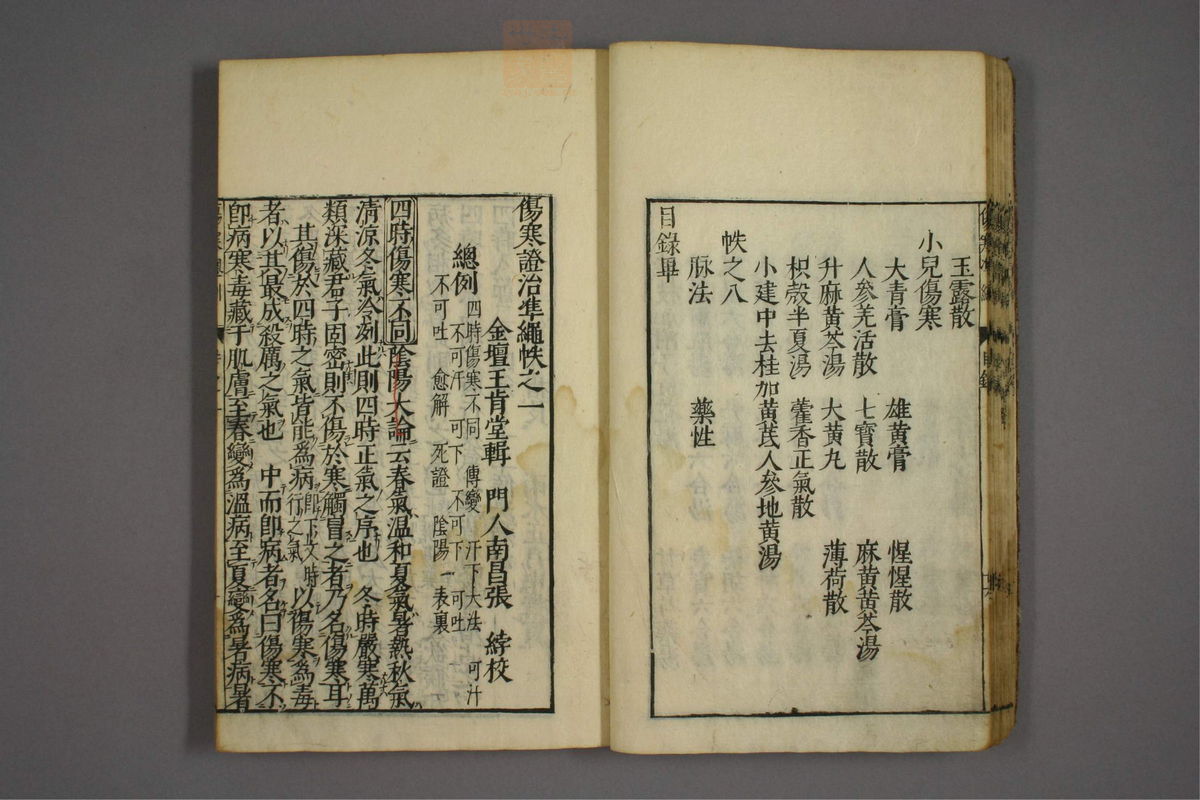 玉露散
小兒傷寒
大青膏 雄黃膏 惺惺散
人參羌活散 七寶散 麻黃黃芩湯
升麻黃芩湯 大黃丸 薄荷散
枳殼半夏湯 藿香正氣散
小建中去桂加黃芪人參地黃湯
帙之八
脉法 藥性
目錄畢
傷寒證治準繩帙之一
金壇王肯堂輯 門人南昌張 綍校
總例 四時傷寒不同 傳變 汗下大法 可汗
不可汗 可下 不可下 可吐
不可吐 愈解 死證 陰陽 表裏
四時傷寒不同 陰陽大論云春氣温和夏氣暑熱秋氣
清涼冬氣冷冽此則四時正氣之序也 冬時嚴寒萬
類深藏君子固密則不傷於寒觸冒之者乃名傷寒耳
其傷於四時之氣皆能爲病 即下文時行之氣 以傷寒爲毒
者以其最成殺厲之氣也 中而即病者名曰傷寒不
即病寒毒藏于肌膚至春變爲溫病至夏變爲暑病暑